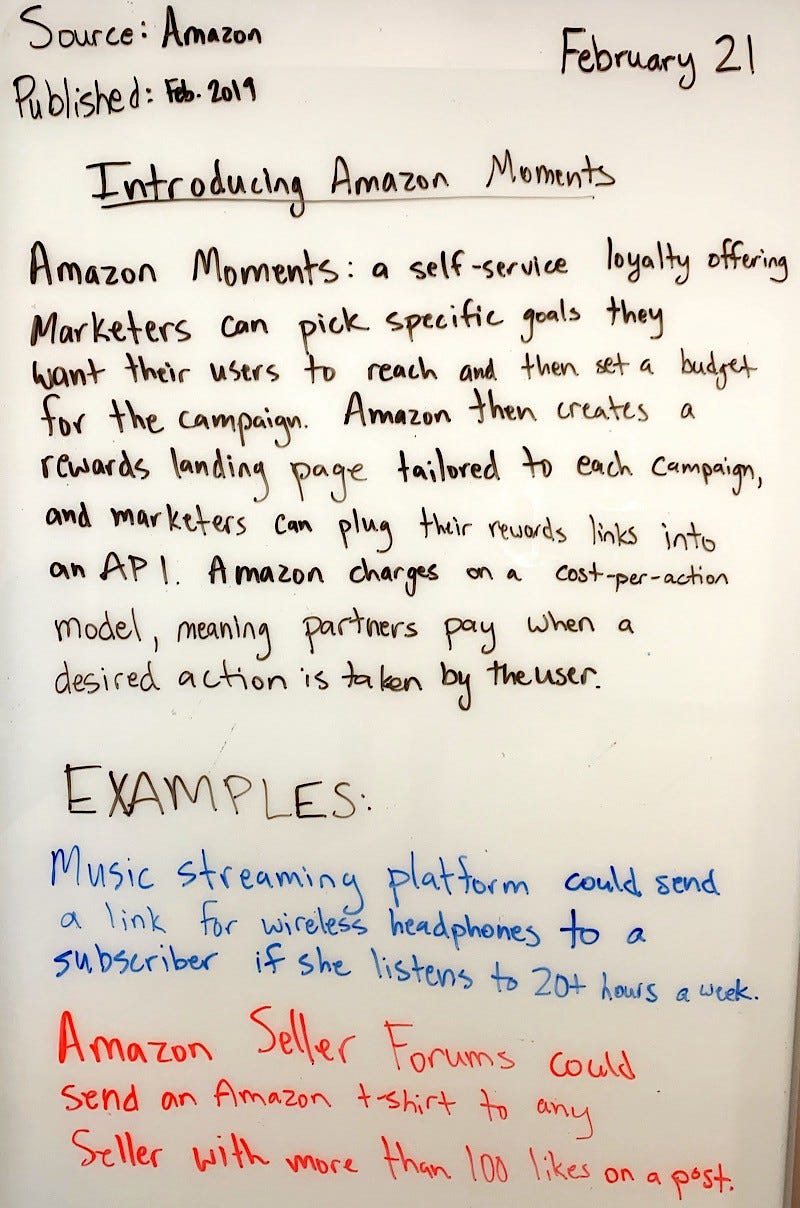 Source: Amazon
February 21
Published: Feb. 2019
Introducing Amazon Moments
Amazon Moments: a self-service loyalty offering
Marketers can pick specific goals they
want their users to reach and then set a budget
for the campaign. Amazon then creates a
rewards landing page tailored to each campaign,
and marketers can plug their rewards links into
an API. Amazon charges on a cost-per-action
model, meaning partners pay when a
desired action is taken by the user.
EXAMPLES:
Music streaming platform could send
a link for wireless headphones to a
subscriber if she listens to 20+ hours a week.
Amazon Seller Forums could
send an Amazon t-shirt to any
Seller with more than 100 likes on a post.